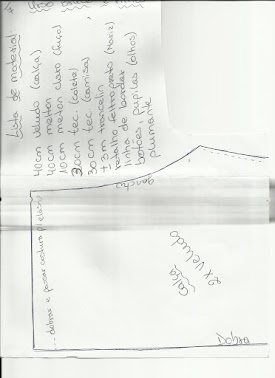 Lista de material
40cm veludo (calça)
40cm melton
10cm meton claro (fuço)
30cm tec. (colete)
30cm tec (camisa)
+ 3m trancelin
retalho feltro preto (nariz)
linha de bordar
botões, pupilas (olhos)
plumante
gancho
... dobrar e passar costura p/ elástico
calça
2x veludo
Dobra